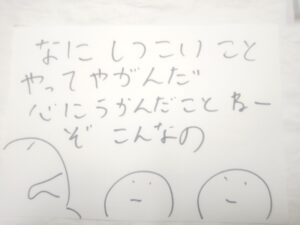 なに しつこい こと
やってやがんだ
心にうかんだこと ねー
ぞ こんなの